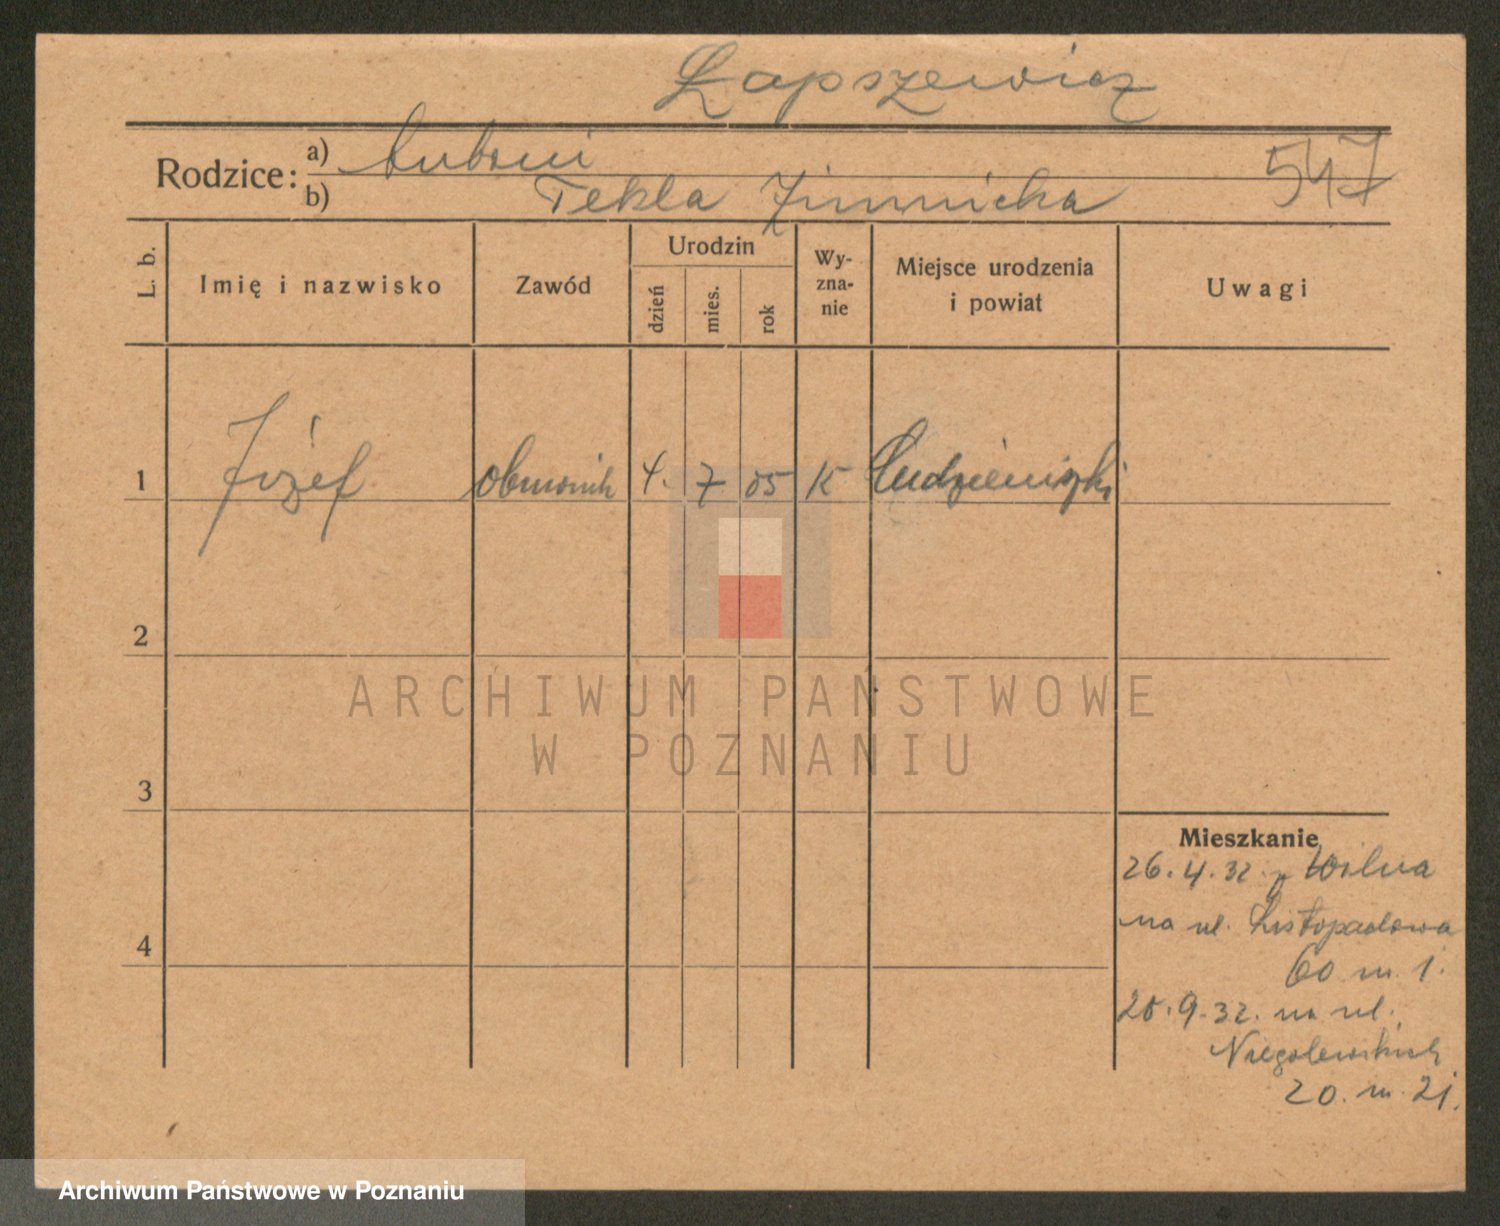 Łapszewicz
Rodzice: a) Antoni
b) Tekla Zimnicka
547
L. b.
Imię i nazwisko
Zawód
Urodzin
dzień
mies.
rok
Wy-
zna-
nie
Miejsce urodzenia
i powiat
Uwagi
1 Józef 4. 7 05 K
2
3
4
Mieszkanie
26.4.32. z Wilna
na ul. Listopadowa
60 m. 1.
25.9.32. na ul.
Niegolewskich
20. m. 21.
ARCHIWUM PAŃSTWOWE
W POZNANIU
Archiwum Państwowe w Poznaniu